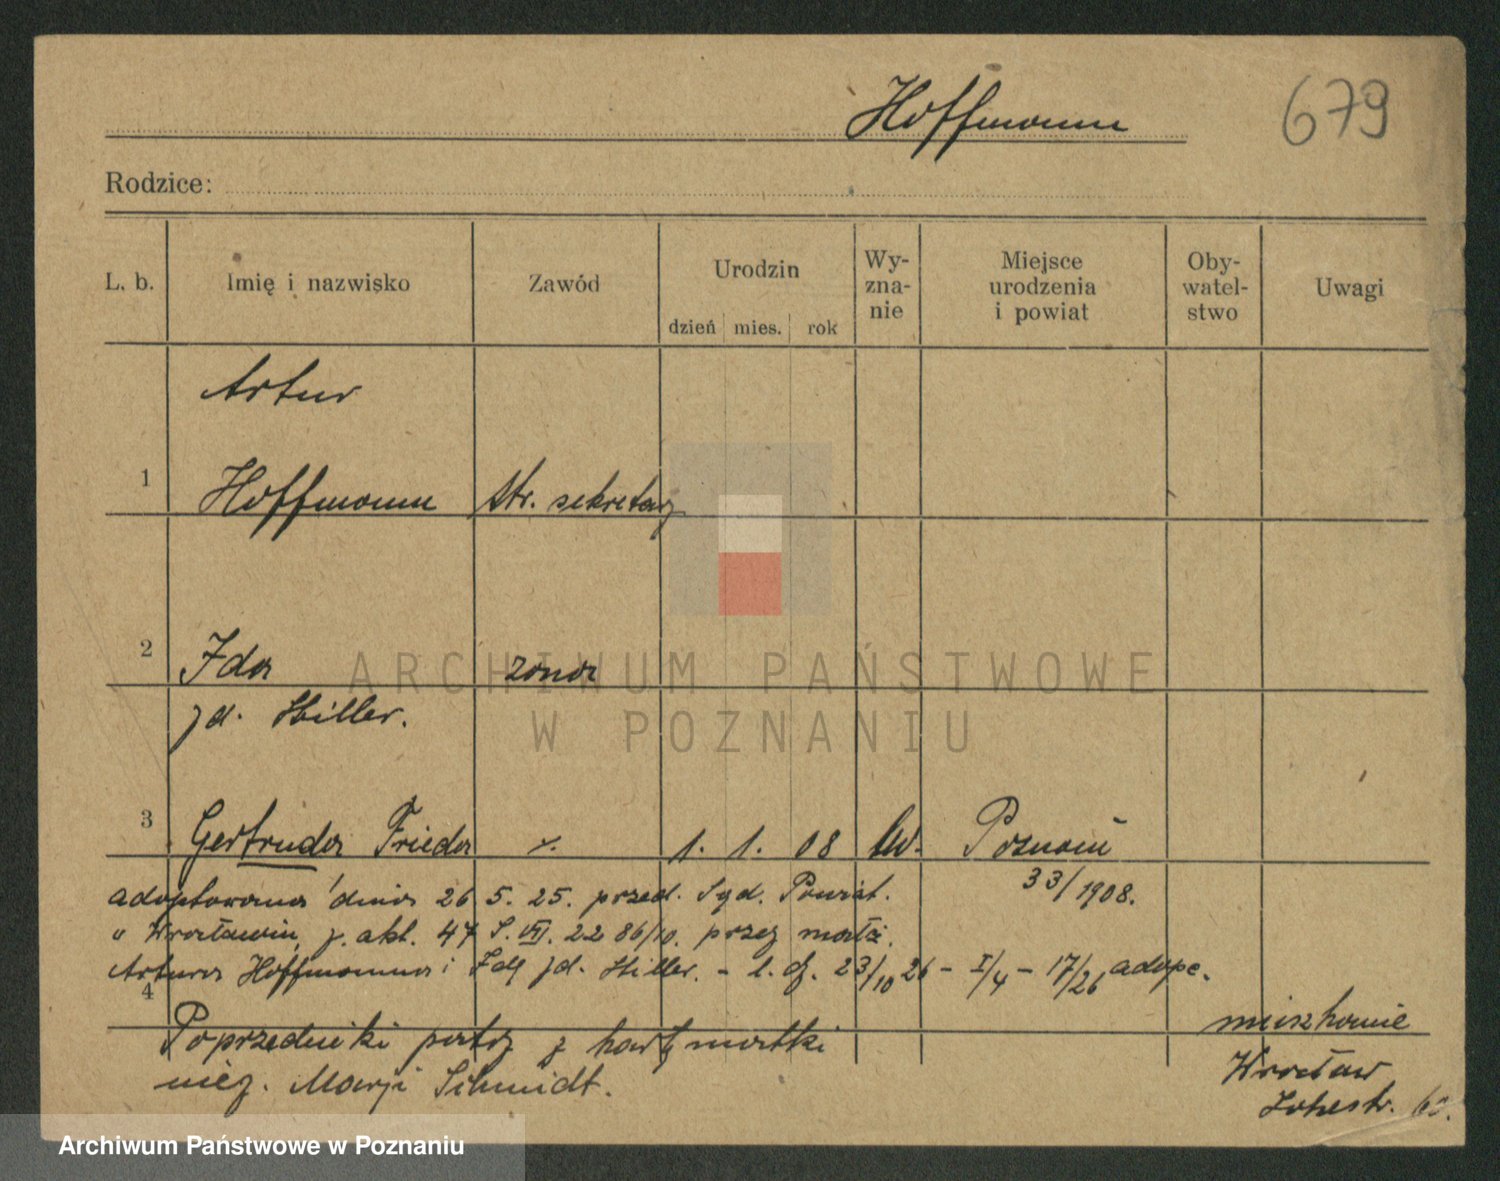 Hoffmann
679
Rodzice:
L. b. Imię i nazwisko Zawód Urodzin dzień mies. rok Wy-zna-nie Miejsce urodzenia i powiat Oby-watel-stwo Uwagi
Artur
1 Hoffmann str. sekretarz
2 Ida żona
zd. Hiller.
3 Gertruda Frieda 1. 1. 08 Poznań
33/1908.
adoptowana dnia 26 5. 25. przed. Sąd. Powiat.
w Wrocławiu, z. akt. 47 S. VII. 22 86/10. przez małż.
Artura Hoffmanna i Idę zd. Hiller. - 23/10 26 - I/4 - 17/26 adopc.
4
Poprzedniki patrz z kartę matki
niez. Marji Schmidt.
mieszkanie
Wrocław
ARCHIWUM PAŃSTWOWE
W POZNANIU
Archiwum Państwowe w Poznaniu